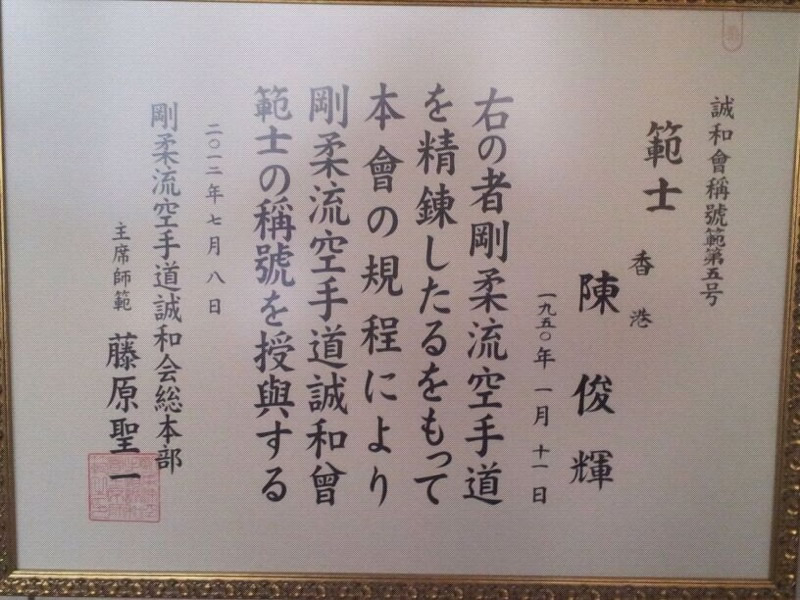 誠和會稱號範第五号
範士
香港
陳俊輝
一九五〇年一月十一日
右の者剛柔流空手道
を精錬したるをもって
本會の規程により
剛柔流空手道誠和曾
範士の稱號を授與する
二〇一二年七月八日
剛柔流空手道誠和会総本部
主席師範 藤原聖一